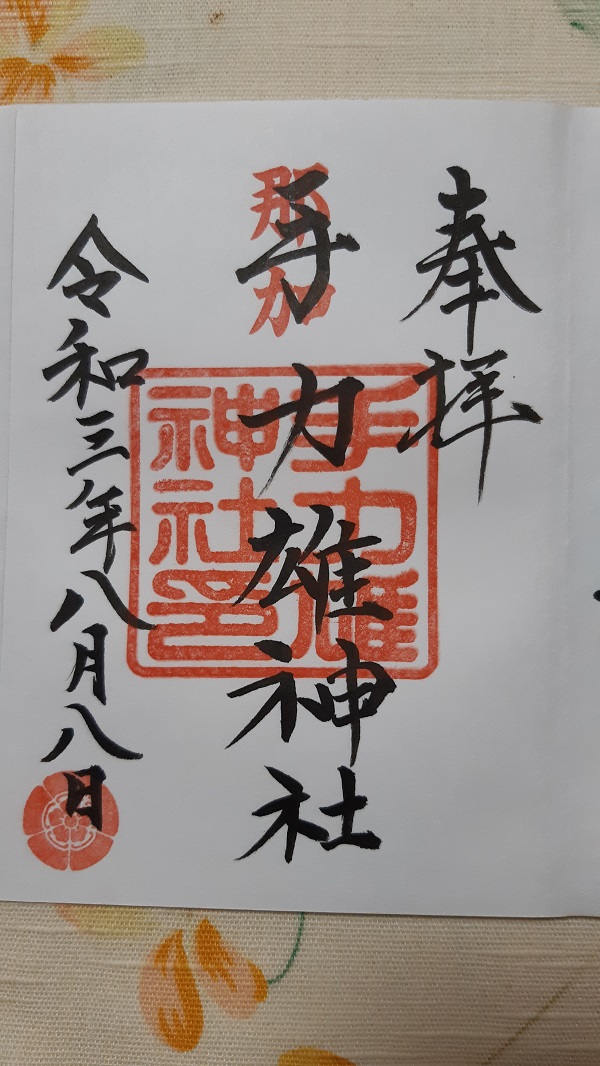 奉拝
那加
手力雄神社
手力雄
神社印
令和三年八月八日